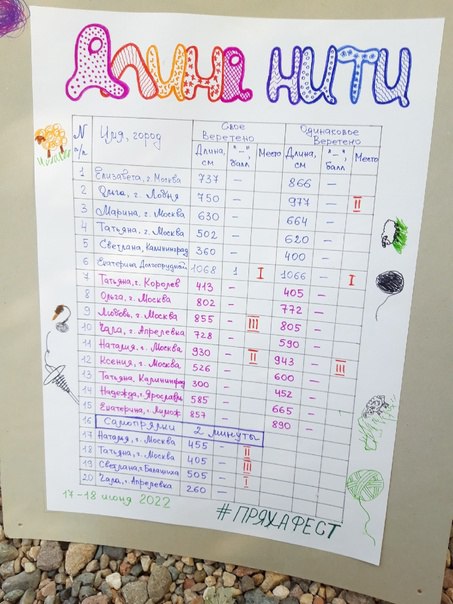 Длина нити
N п/п Имя, город Свое веретено Одинаковое веретено
Длина, см "–" балл Место Длина, см "–", балл Место
1 Елизавета, г. Москва 737 – 866 –
2 Ольга, г. Лобня 750 – 977 – II
3 Марина, г. Москва 630 – 664 –
4 Татьяна, г. Москва 502 – 620 –
5 Светлана, Калининград 360 – 400 –
6 Екатерина Долгопрудный 1068 1 I 1066 – I
7 Татьяна, г. Королев 413 – 405 –
8 Ольга, г. Москва 802 – 772 –
9 Любовь, г. Москва 855 – III 805 –
10 г. Апрелевка 728 – 590 –
11 Наталия, г. Москва 930 – II 943 – III
12 Ксения, г. Москва 526 – 600 –
13 Татьяна, Калининград 300 – 452 –
14 Надежда, г. Ярославль 585 – 665 –
15 Екатерина, г. 857 – 890 –
16 Самопрялки 2 минуты
17 Наталия, г. Москва 455 – II
18 Татьяна, г. Москва 405 – III
19 Светлана, г. Балашиха 505 – I
20 г. Апрелевка 260 –
17-18 июня 2022
#ПРЯХАФЕСТ